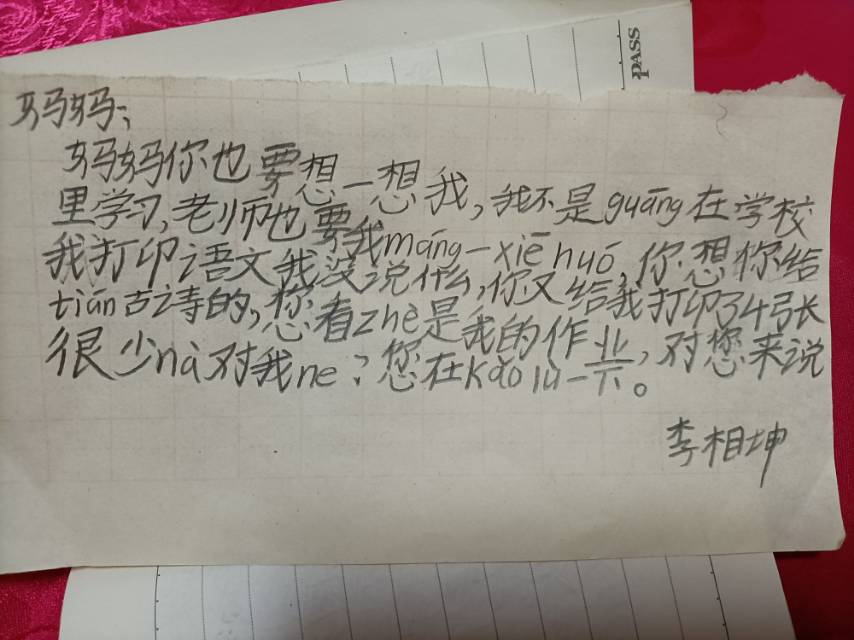 PASS
妈妈:
妈妈你也要想一想我,我不是guāng在学校
里学习,老师也要我máng一xiē huó,你想你给
我打印语文我没说什么,你又给我打印34张
tián古诗的,您看zhè是我的作业,对您来说
很少nà对我ne?您在kǎo lǜ一下。
李相坤